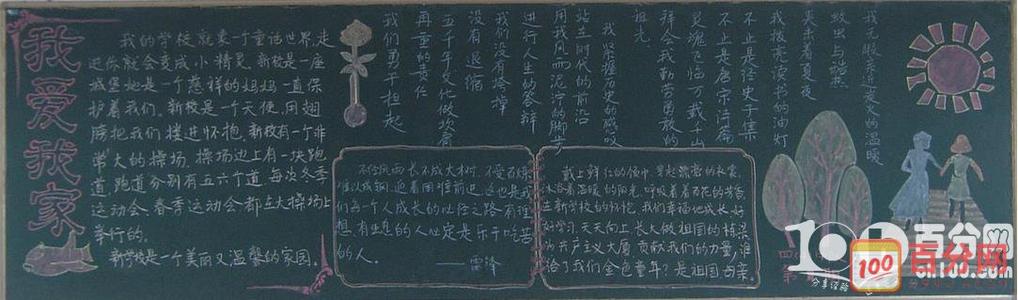 我爱我家
我的学校就象一个童话世界,走
进你就会变成小精灵.新校是一座
城堡她是一个慈祥的妈妈一直保
护着我们。新校是一个天使,用翅
膀把我们搂进怀抱.新校有一个非
常大的操场.操场边上有一块跑
道.跑道分别有五六个道.每次冬季
运动会、春季运动会都在大操场上
举行的。
新学校是一个美丽又温馨的家园。
我无暇
夏夜
我拨亮读书的油灯
不止是经史子集
不止是唐宋诗篇
灵魂
我紧握历史的
站立时代的前沿
用我风雨泥泞的脚步
进行人生的答辩
我们没有徬惶
没有退缩
五千年文化做
再重的责任
我们勇于担起
不经风雨长不成大树,不受百炼
难以成钢.迎着困难前进,这也是我
们每一个人成长的必经之路有理
想有的人必定是乐于吃苦
的人。
——雷锋
戴上鲜红的领巾.穿起漂亮的衣裳,
沐浴着温暖的阳光.呼吸着百花的
在新学校的怀抱,我们幸福地成长.好
好学习.天天向上.长大做祖国的栋梁
为共产主义大厦贡献我们的力量,谁
给了我们金色童年?是祖国母亲.
100
百分网
cn100.com
分享经验